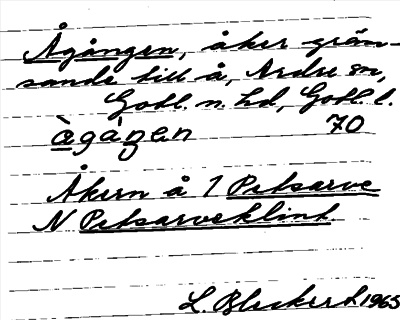 Ågången, åker grän-
sande till å, Ardre sn,
Gotl. n. hd, Gotl. l.
ågáŋen 70
Åkern å 1 Petsarve
N Petsarveklint.
L. 1965